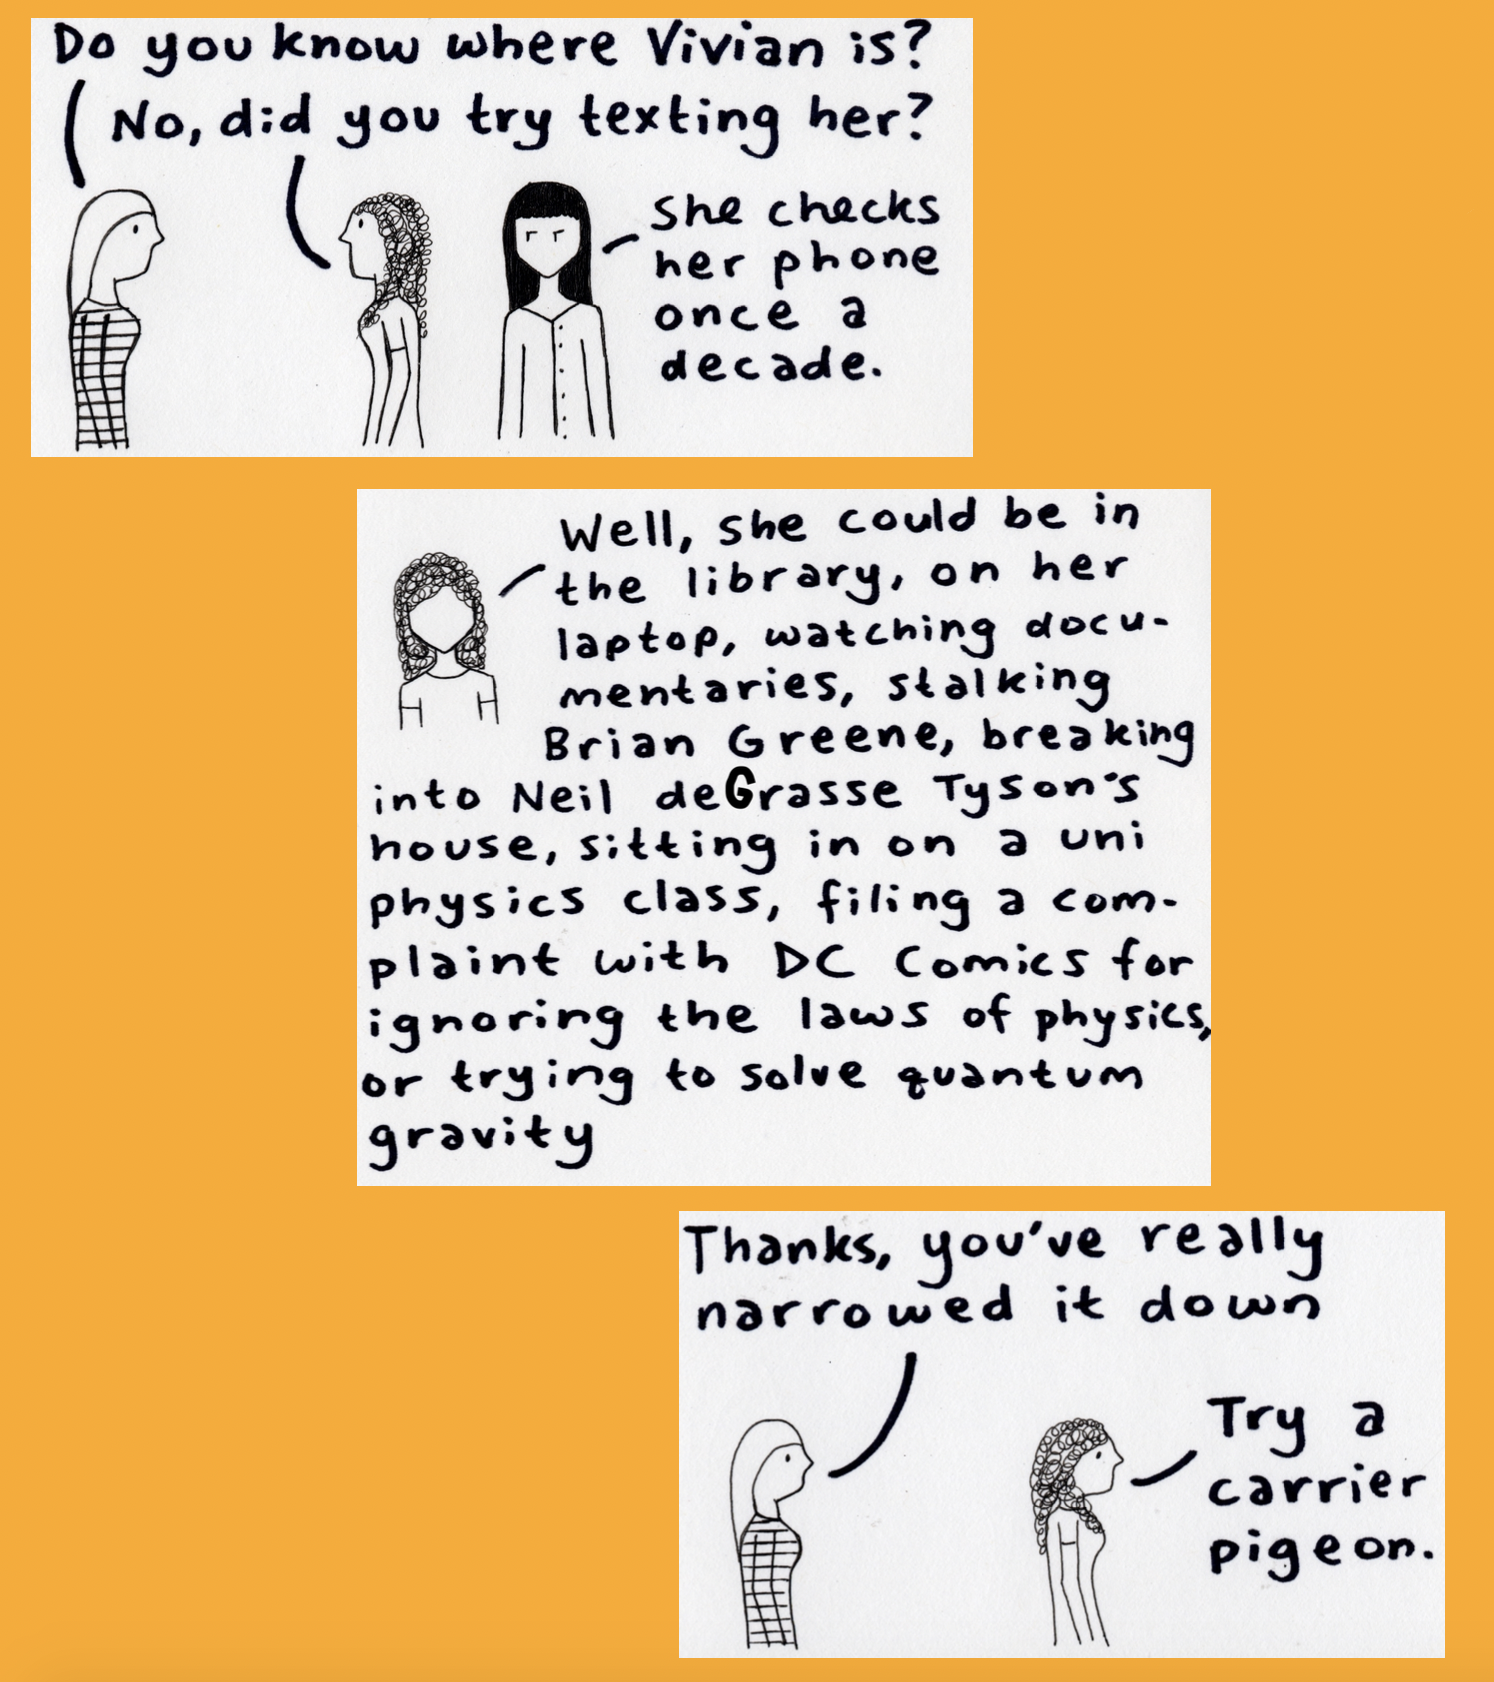 Do you know where Vivian is?
No, did you try texting her?
She checks
her phone
once a
decade.
Well, she could be in
the library, on her
laptop, watching docu-
mentaries, stalking
Brian Greene, breaking
into Neil deGrasse Tyson's
house, sitting in on a uni
physics class, filing a com-
plaint with DC Comics for
ignoring the laws of physics,
or trying to solve quantum
gravity
Thanks, you've really
narrowed it down
Try a
carrier
pigeon.